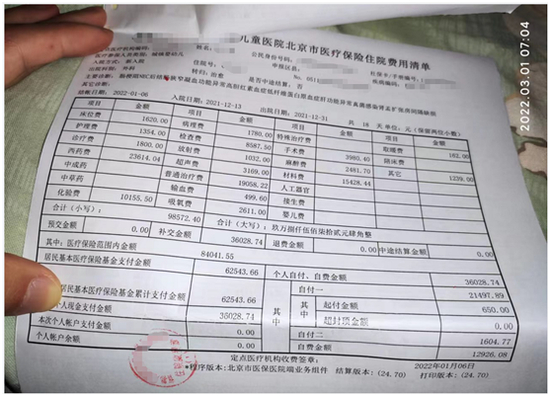 儿童医院北京市医疗保险住院费用清单
2022.03.01 07:04
定点医疗机构编码:
医疗参保人员类别: 城镇婴幼儿
公民身份号码:
入院方式: 新入院
住院号:
单据号:
社保卡卡号:
出院科别: 外科
转归: 治愈
是否中途结算: 否
No. 051
红泪诊断
结收日期: 2022-01-06
入院日期: 2021-12-13
出院日期: 2021-12-31
共 18 天 单位: 元 (保留两位小数)
项目 金额 项目 金额 项目 金额 项目 金额
床位费 1620.00 病理费 特殊治疗费 取暖费
护理费 1354.00 检查费 1780.00 手术费 3980.40 陪床费 162.00
诊疗费 1800.00 放射费 8587.50 麻醉费 2481.70 其它
西药费 23614.04 超声费 1032.00 材料费 15428.44 1239.00
中成药 普通治疗费 3169.00 人工器官
中草药 输血费 19058.22 接生费
化验费 10155.50 吸氧费 499.60 婴儿费
2611.00
合计(小写): 98572.40 合计(大写): 玖万捌仟伍佰柒拾贰元肆角整
预交金额 0.00 补交金额 36028.74 退费金额 0.00 中途结算金额 0.00
其中: 医疗保险范围内金额 84041.55
居民基本医疗保险基金支付金额 62543.66 个人自付、自费金额 36028.74
居民基本医疗保险基金累计支付金额 62543.66 其中 自付一 21497.89
个人现金支付金额 35028.74 其中 起付金额 650.00
本次个人帐户支付金额 0.00 超封顶金额 0.00
个人帐户余额 0.00 自付二 1604.77
自费金额 12926.08
定点医疗机构收费签章: 2022年01月06日
*程序版本: 北京市医保医院端业务组件 结算版本: (24.70) 打印版本: (24.70)